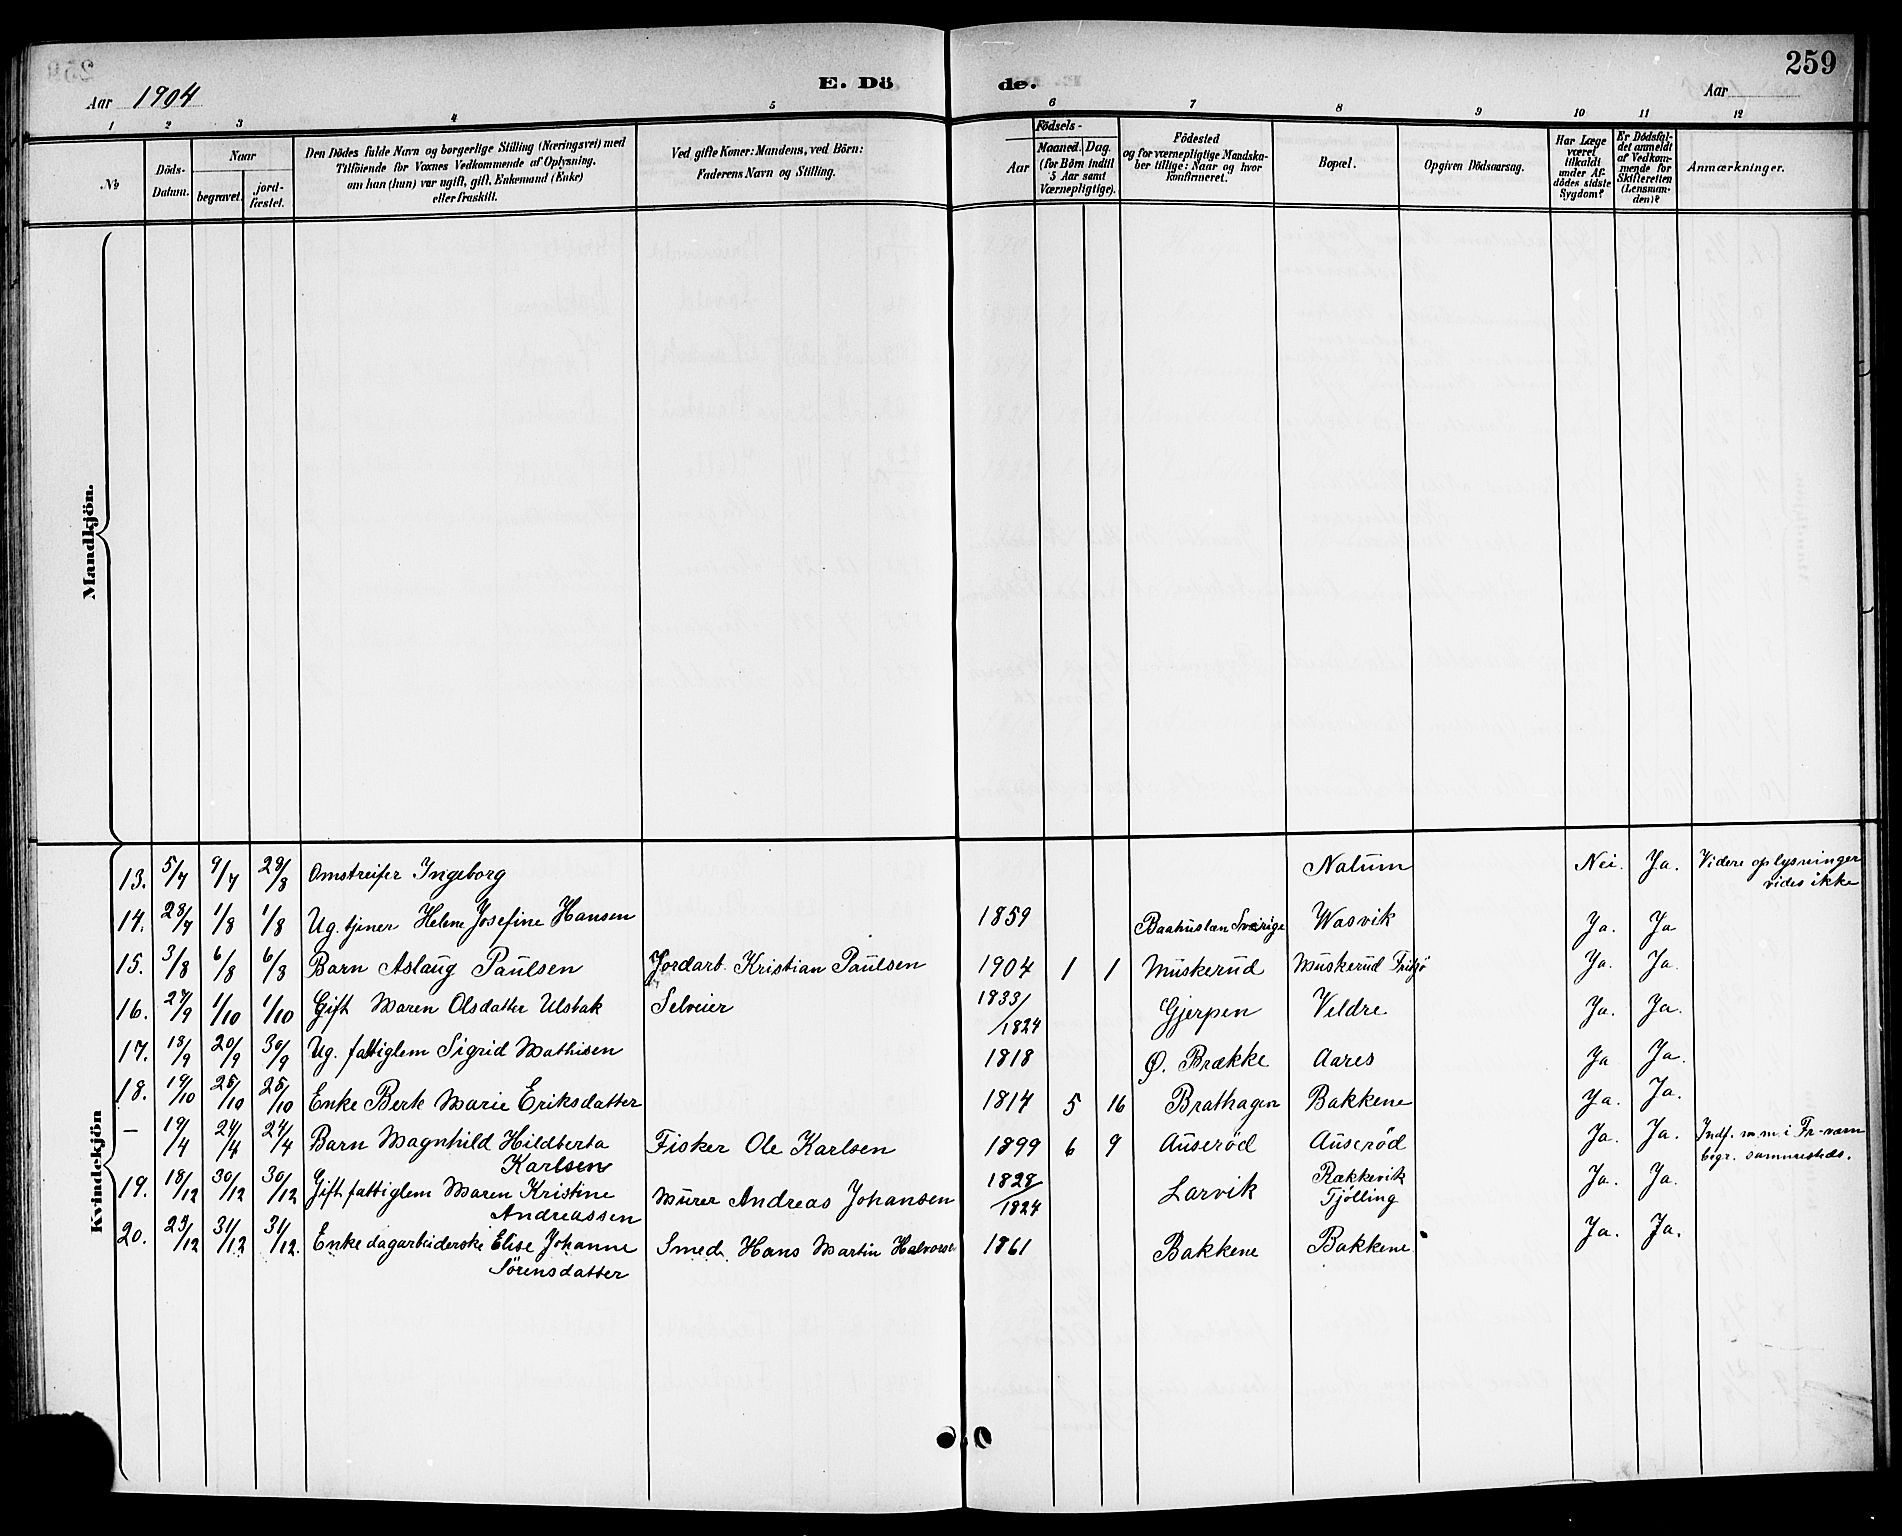 259
Aar 1904
E. Dö
de.
Aar
1 2 3 4 5 6 7 8 9 10 11 12
№
Döds-
Datum.
Naar
begravet.
jord-
fæstet.
Den Dödes fulde Navn og borgerlige Stilling (Næringsvei) med
Tilföiende for Voxnes Vedkommende af Oplysning,
om han (hun) var ugift, gift, Enkemand (Enke)
eller fraskilt.
Ved gifte Koner: Mandens, ved Börn:
Faderens Navn og Stilling.
Födsels-
Aar
Maaned. Dag.
(for Börn indtil
5 Aar samt
Værnepligtige).
Födested
og for værnepligtige Mandska-
ber tillige: Naar og hvor
konfirmeret.
Bopæl.
Opgiven Dödsaarsag.
Har Læge
været
tilkaldt
under Af-
dödes sidste
Sygdom?
Er Dödsfal-
det anmeldt
af Vedkom-
mende for
Skifteretten
(Lensman-
den)?
Anmærkninger.
Mandkjön.
Kvindekjön
13. 5/7 9/7 28/8 Omstreifer Ingeborg Nalum Nei. Ja. Videre oplysninger
vides ikke
14. 28/7 1/8 1/8 Ug. tjener Helene Josefine Hansen 1859 Baahuslen Sverige Wasvik Ja. Ja
15. 3/8 6/8 6/8 Barn Aslaug Paulsen Jordarb. Kristian Paulsen 1904 1 1 Muskerud Muskerud Fritzö Ja. Ja.
16. 27/9 1/10 1/10 Gift Maren Olsdatter Ulsbak Selveier 1833/1824 Gjerpen Veldre Ja. Ja.
17. 18/9 20/9 30/9 Ug. fattiglem Sigrid Mathisen 1818 Ø. Brække Aares Ja Ja.
18. 19/10 25/10 25/10 Enke Berte Marie Eriksdatter 1814 5 16 Brathagen Bakkene Ja. Ja.
— 19/4 24/4 24/4 Barn Magnhild Hildberta Fisker Ole Karlsen 1899 6 9 Auserød Auserød Ja. Ja. Indf. m.m. i Fr-værn
Karlsen begr. sammesteds.
19. 18/12 30/12 30/12 Gift fattiglem Maren Kristine Murer Andreas Johansen 1828/1824 Larvik Rakkevik Ja. Ja.
Andreassen Tjølling
20. 23/12 31/12 31/12. Enke dagarbeiderske Elise Johanne Smed Hans Martin Halvorse 1861 Bakkene Bakkene Ja. Ja.
Sørensdatter